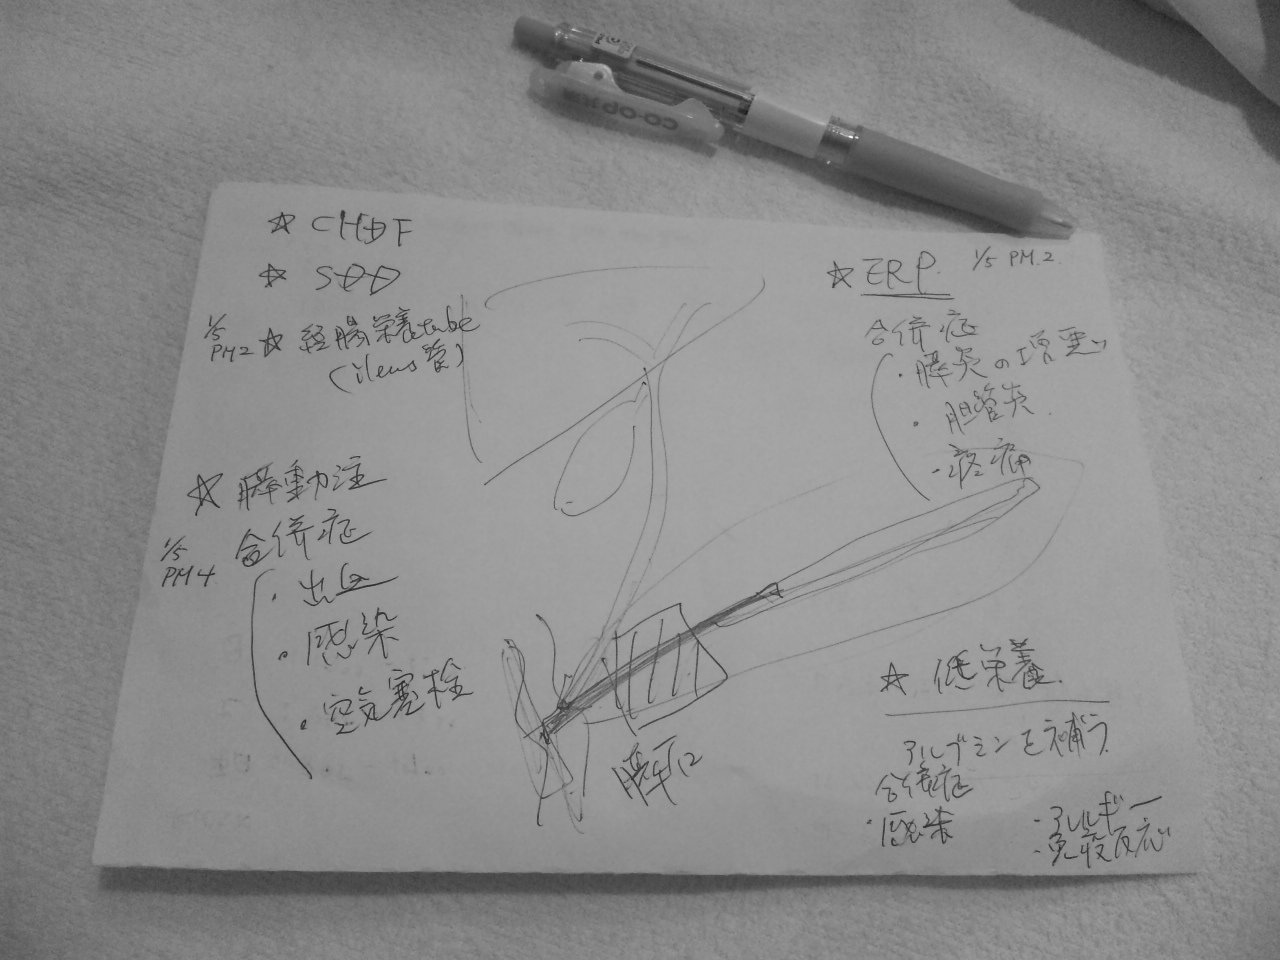 CO-OP
☆ CHDF
☆ SDD
1/5 PM2 ☆ 経腸栄養tube
(ileus管)
☆ 膵動注
1/5 PM4
合併症
・出血
・感染
・空気塞栓
☆ ERP. 1/5 PM.2.
合併症
・膵炎の増悪
・胆管炎.
・疼痛
膵石
☆ 低栄養.
アルブミンを補う.
合併症
・感染
・アレルギー
・免疫反応